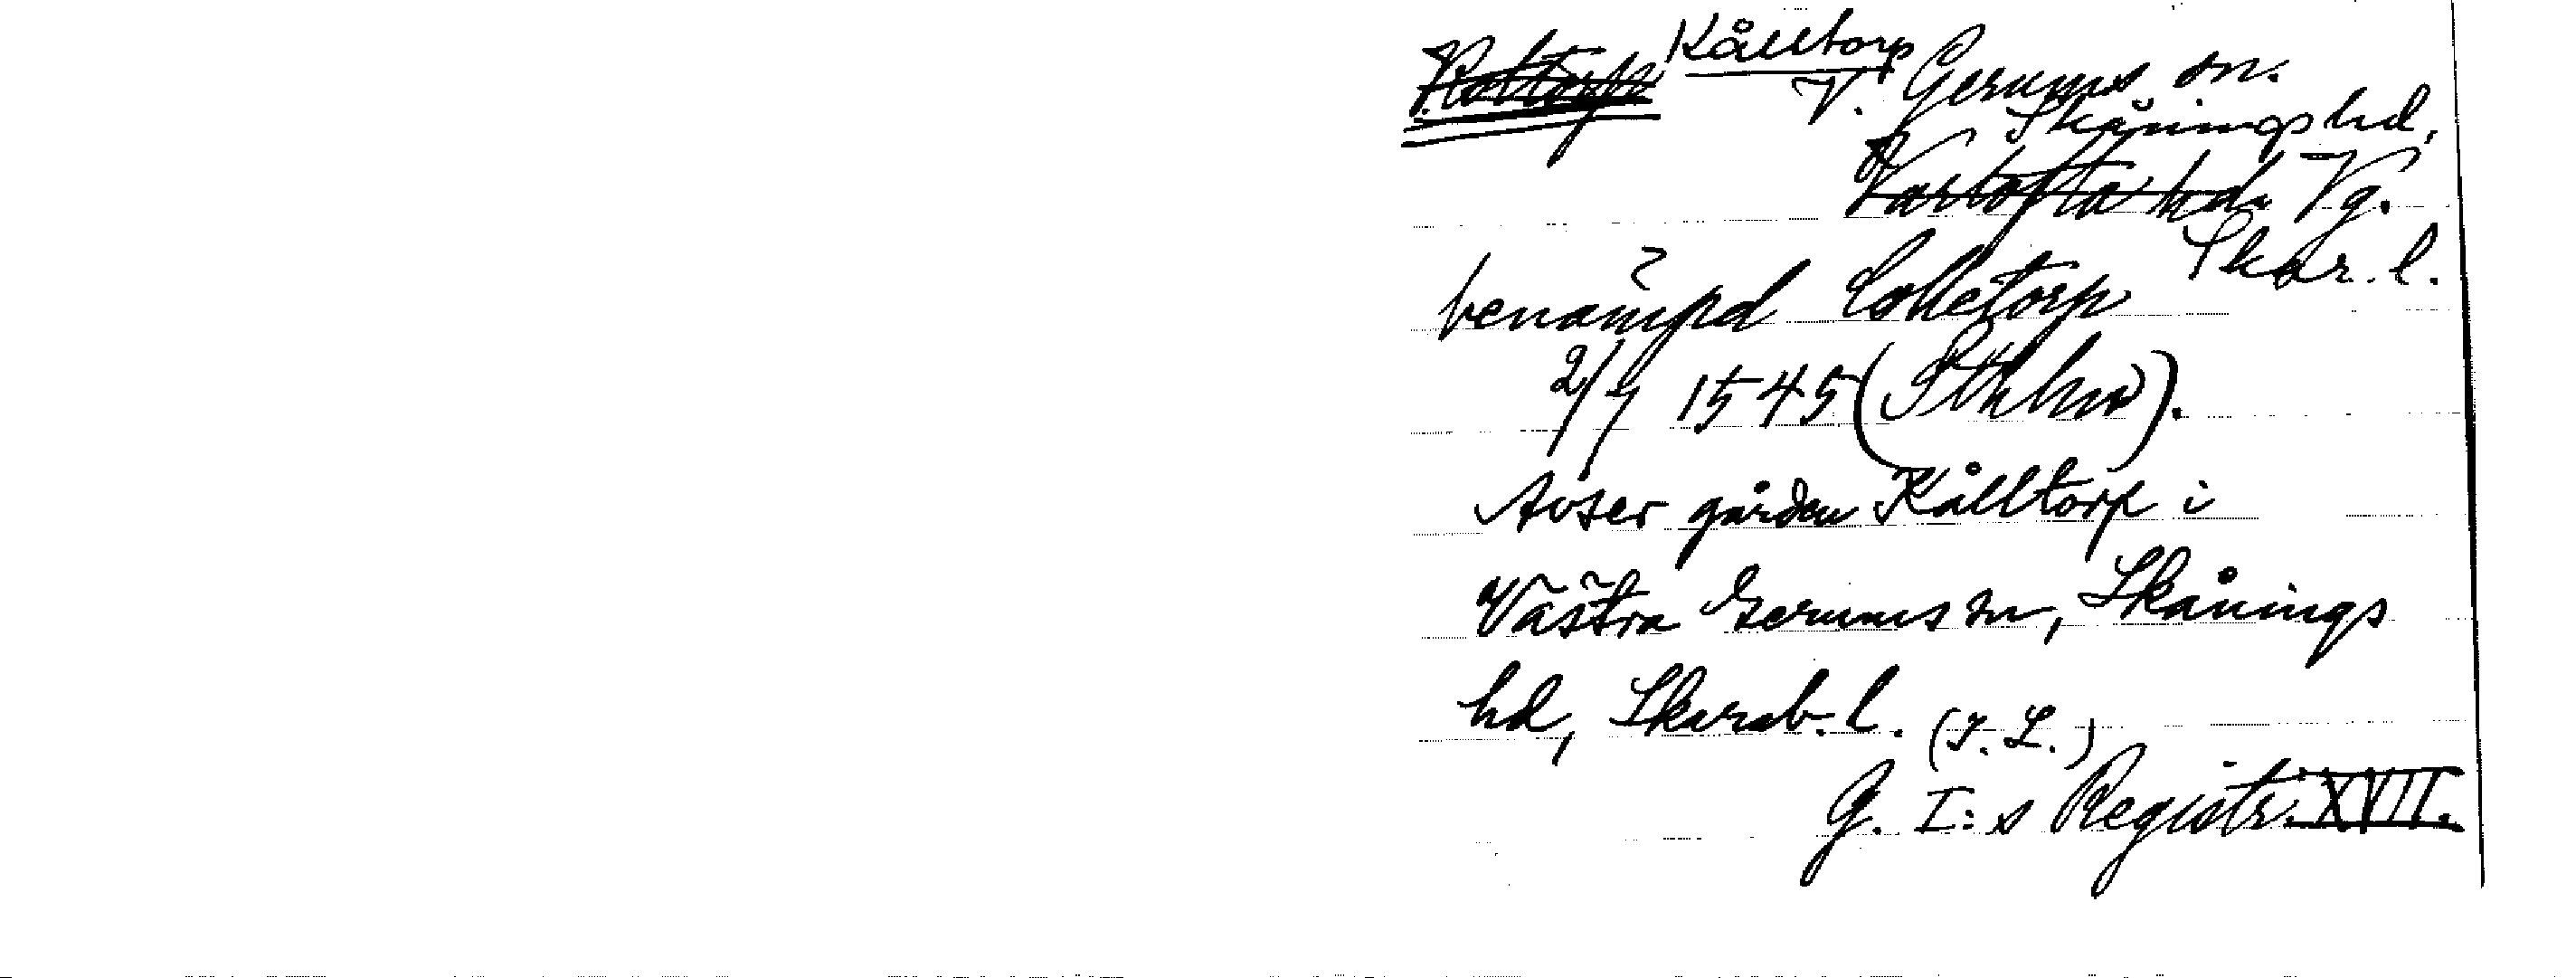 Koltorp Kålltorp V. Gerums sn.
Skånings hd,
Vartofta hd. Vg.
Skar. l.
benämpd Colletorp
2/7 1545 (Sthlm).
Avser gården Kålltorp i
Västra Gerums sn, Skånings
hd, Skarab. l. (I. L.)
G. I:s Registr. XVII.